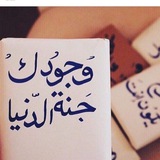 وجودك
جنة الدنيا